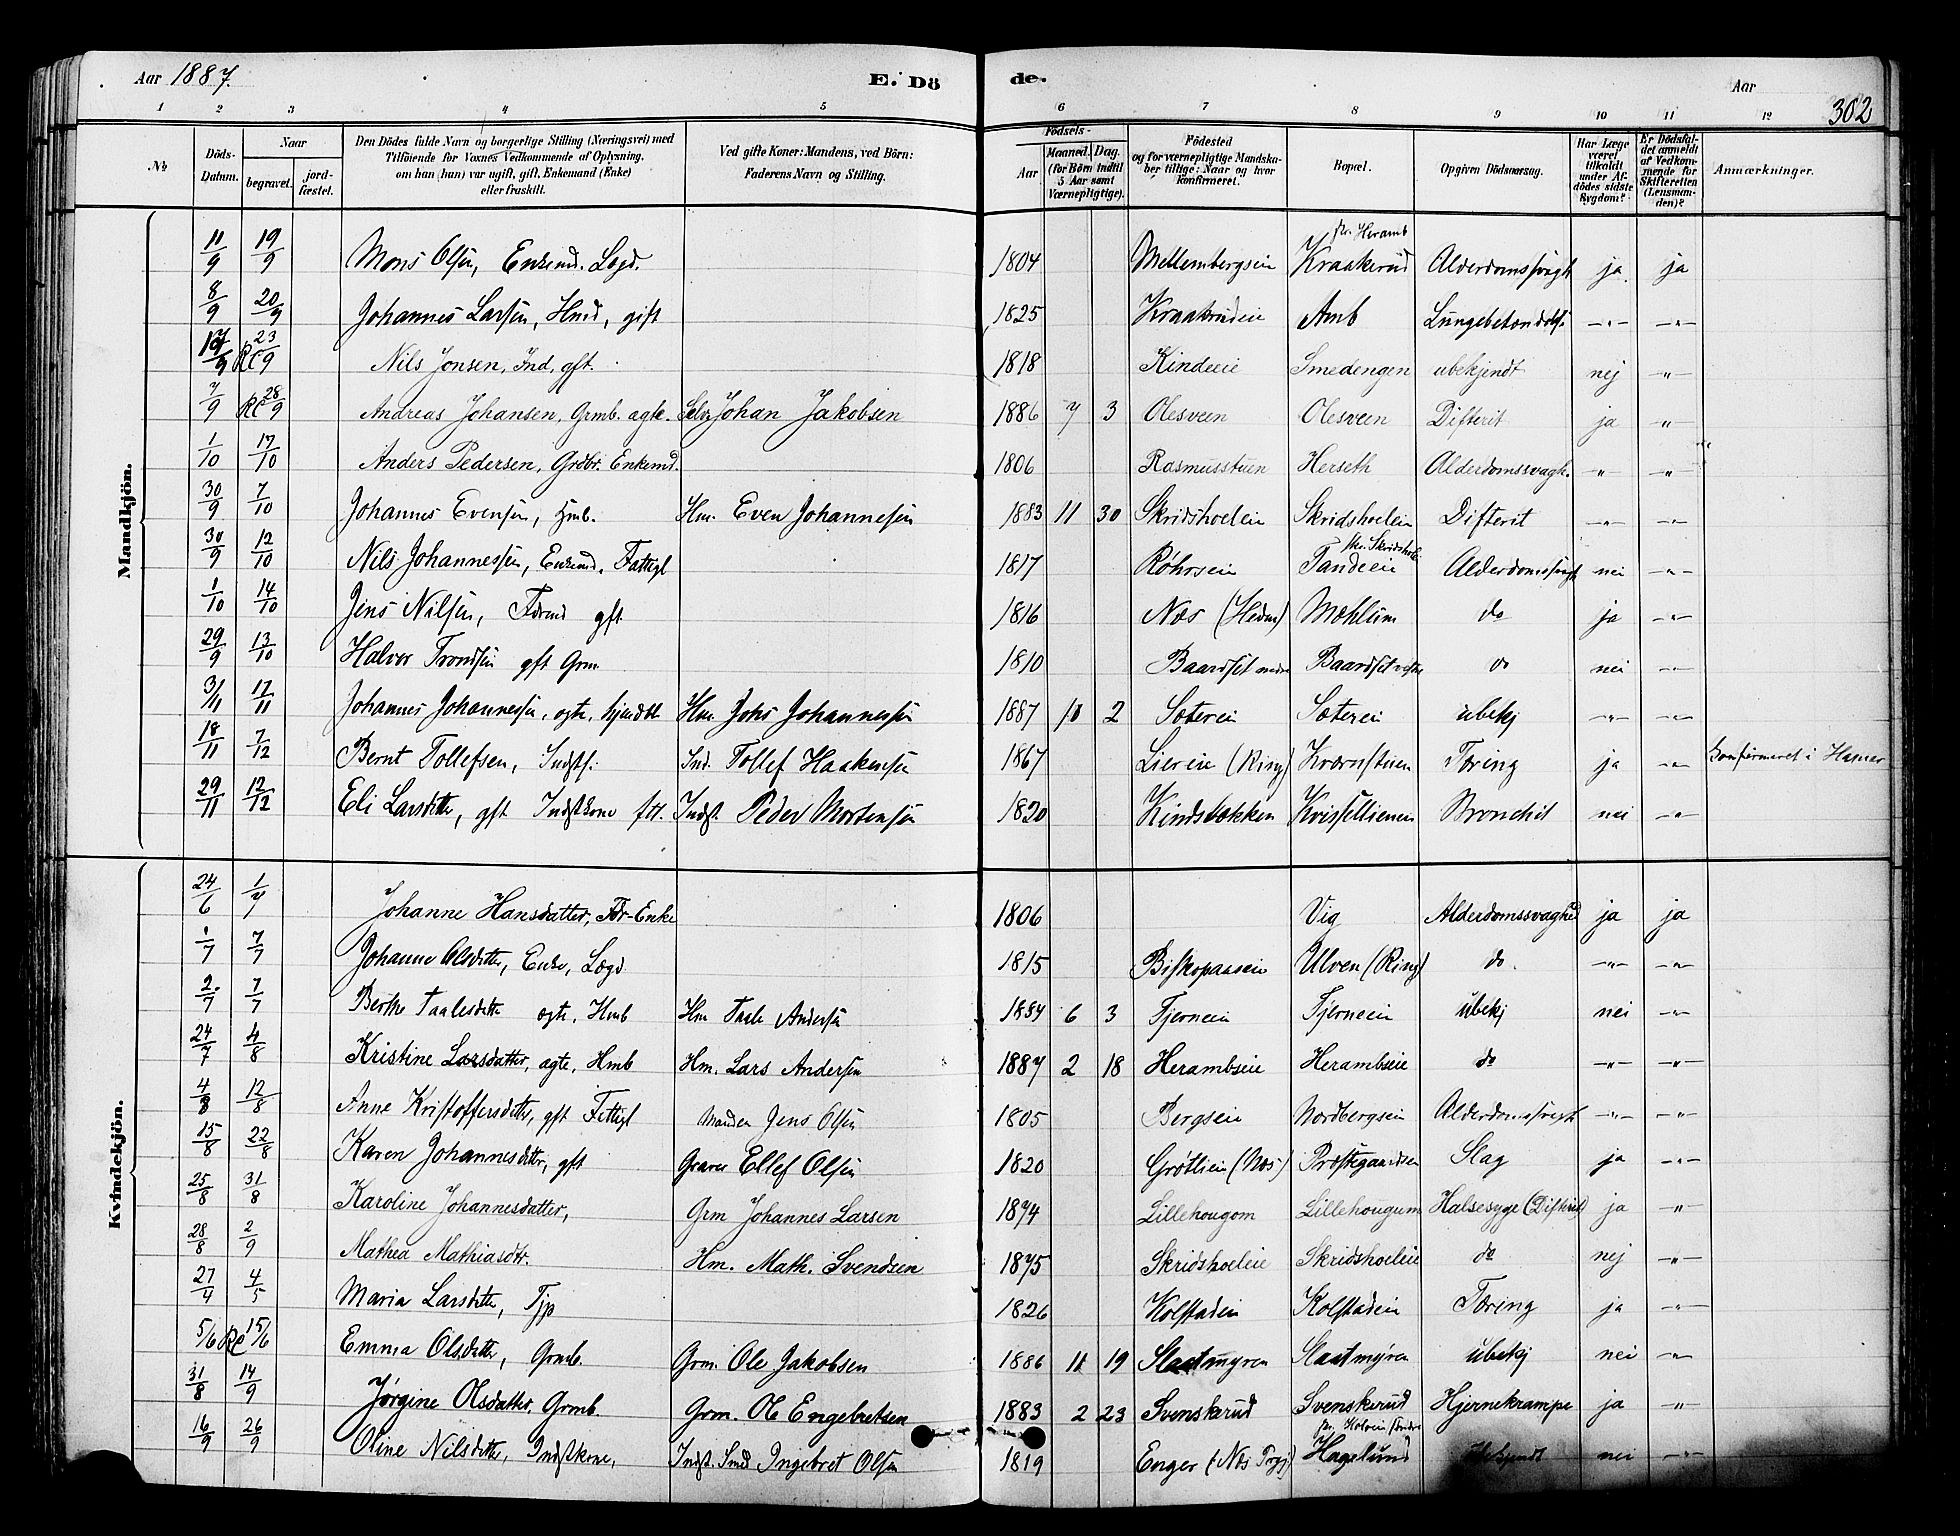 Aar 1887. E. Dö de. Aar 302
1 2 3 4 5 6 7 8 9 10 11 12
No. Döds-Datum. Naar begravet. jord-fæstet. Den Dödes fulde Navn og borgerlige Stilling (Næringsvei) med Tilföiende for Voxnes Vedkommende af Oplysning, om han (hun) var ugift, gift, Enkemand (Enke) eller fraskilt. Ved gifte Koner: Mandens, ved Börn: Faderens Navn og Stilling. Födsels- Aar Maaned. Dag. (for Börn indtil 5 Aar samt Værnepligtige). Födested og for værnepligtige Mandskaber tillige: Naar og hvor konfirmeret. Bopæl. Opgiven Dödsaarsag. Har Læge været tilkaldt under Afdödes sidste Sygdom? Er Dödsfaldet anmeldt af Vedkommende for Skifteretten (Lensmanden)? Anmærkninger.
Mandkjön.
11/9 19/9 Mons Olsen, Enkemd. Legd. 1804 Mellembergseie Kraakerud pr. Heramb Alderdomssvagh ja. ja
8/9 20/9 Johannes Larsen, Hmd, gift 1825 Kraakrudeie Amb Lungebetændelse —"— —"—
17/9 RC 23/9 Nils Jonsen, Ind. gft. 1818 Kindeeie Smedengen ubekjendt nej "
7/9 RC 28/9 Andreas Johansen, Grmb. ægte. Selv. Johan Jakobsen 1886 7 3 Olesveen Olesveen Difterit ja "
1/10 17/10 Anders Pedersen, Grdbr. Enkemd. 1806 Rasmusstuen Herseth Alderdomssvagh. " "
30/9 7/10 Johannes Evensen, Hmb. Hm. Even Johannesen 1883 11 30 Skridshoeleie Skridshoeleie Difterit —"— —"—
30/9 12/10 Nils Johannessen, Enkemd, Fattigl 1817 Röhrseie Tandeeie Alderdomssvagh nei —"—
1/10 14/10 Jens Nilsen, gft 1816 Næs (Hedm) Mæhlum do ja —"—
29/9 13/10 Halvor Trondsen gft Grm. 1810 Baardset nedre Baardset vestre do nei —"—
3/11 17/11 Johannes Johannessen, ægte, hjemdbt Hm. Johs Johannessen 1887 10 2 Sætereie Sætereie ubekj —"— —"—
18/11 7/12 Bernt Tollefsen, Indsts: Ind. Tollef Haakensen 1867 Liereie (Ring) Kværnstuen Tæring ja —"— Konfirmeret i Hamar
29/11 12/12 Eli Larsdtter, gft Indstkone ftl. Indst. Peder Mortensen 1820 Kindsbækken Kvisellienen Bronchit nei —"—
Kvindekjön.
24/6 1/7 Johanne Hansdatter, Fdr-Enke 1806 Vig Alderdomssvaghed ja ja
1/7 7/7 Johanne Olsdtter, Enke, Lægd 1815 Biskopaaseie Ulven (Ring) do. —"— —"—
2/7 7/7 Berthe Taalesdtter ægte, Hmb Hm Taale Andersen 1884 6 3 Tjerneeie Tjerneeie ubekj nei —"—
24/7 4/8 Kristine Larsdatter, ægte, Hmb Hm. Lars Andersen 1887 2 18 Herambseie Herambseie do —"— —"—
4/8 12/8 Anne Kristoffersdtter, gft Fattigl Manden Jens Olsen 1805 Bergseie Nordbergseie Alderdomssvagh —"— —"—
15/8 22/8 Karen Johannesdtter, gft Graver Ellef Olsen 1820 Grötlien (Næs) Præstegaardseie Slag ja —"—
25/8 31/8 Karoline Johannesdatter, Grm Johannes Larsen 1874 Lillehougom Lillehougum Halsesyge (Difterit) ja "
28/8 2/9 Mathea Mathiasdtr. Hm. Math. Svendsen 1875 Skridshoeleie Skridshoeleie do nej "
27/4 4/5 Maria Larsdtter, Tjp 1826 Kolstadeie Kolstadeie Tæring ja —"—
5/6 RC 15/6 Emma Olsdatter, Grmb. Grm. Ole Jakobsen 1886 11 19 Slaatmyren Slaatmyren ubekj nei —"—
31/8 14/9 Jörgine Olsdatter, Grmb. Grm. Ole Engebretsen 1883 2 23 Svenskerud Svenskerud Hjernekrampe ja "
16/9 26/9 Oline Nilsdtter, Indstkone, Indst. Smd Ingebret Olsen 1819 Enger (Næs Prgj) Hagelund ubekjendt nei —"—